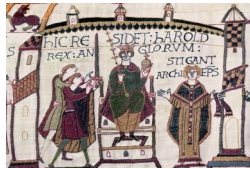 HIC RE SIDET: HAROLD
REX: AN GLORVM:
STIGANT
ARCHI EPS